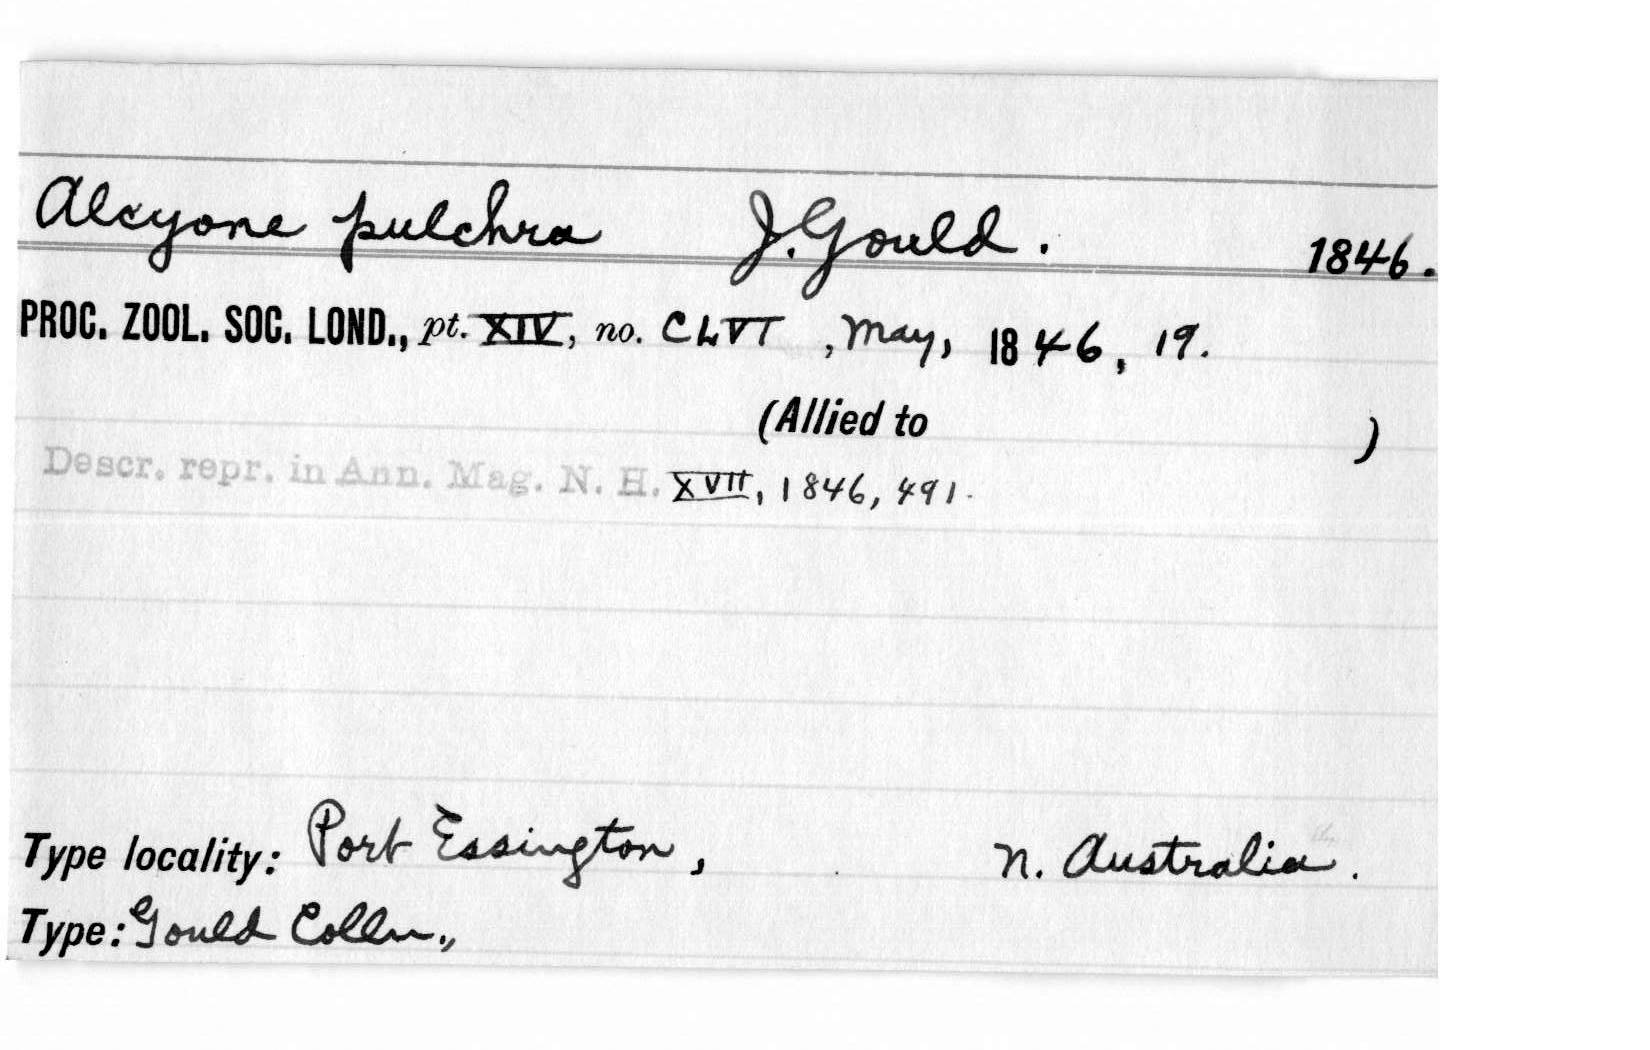 Alcyone pulchra J. Gould. 1846.
PROC. ZOOL. SOC. LOND., pt. XIV, no. CLVI, May, 1846, 19.
(Allied to )
Descr. repr. in Ann. Mag. N. H. XVII, 1846, 491.
Type locality: Port Essington, N. Australia.
Type: Gould Colln.,